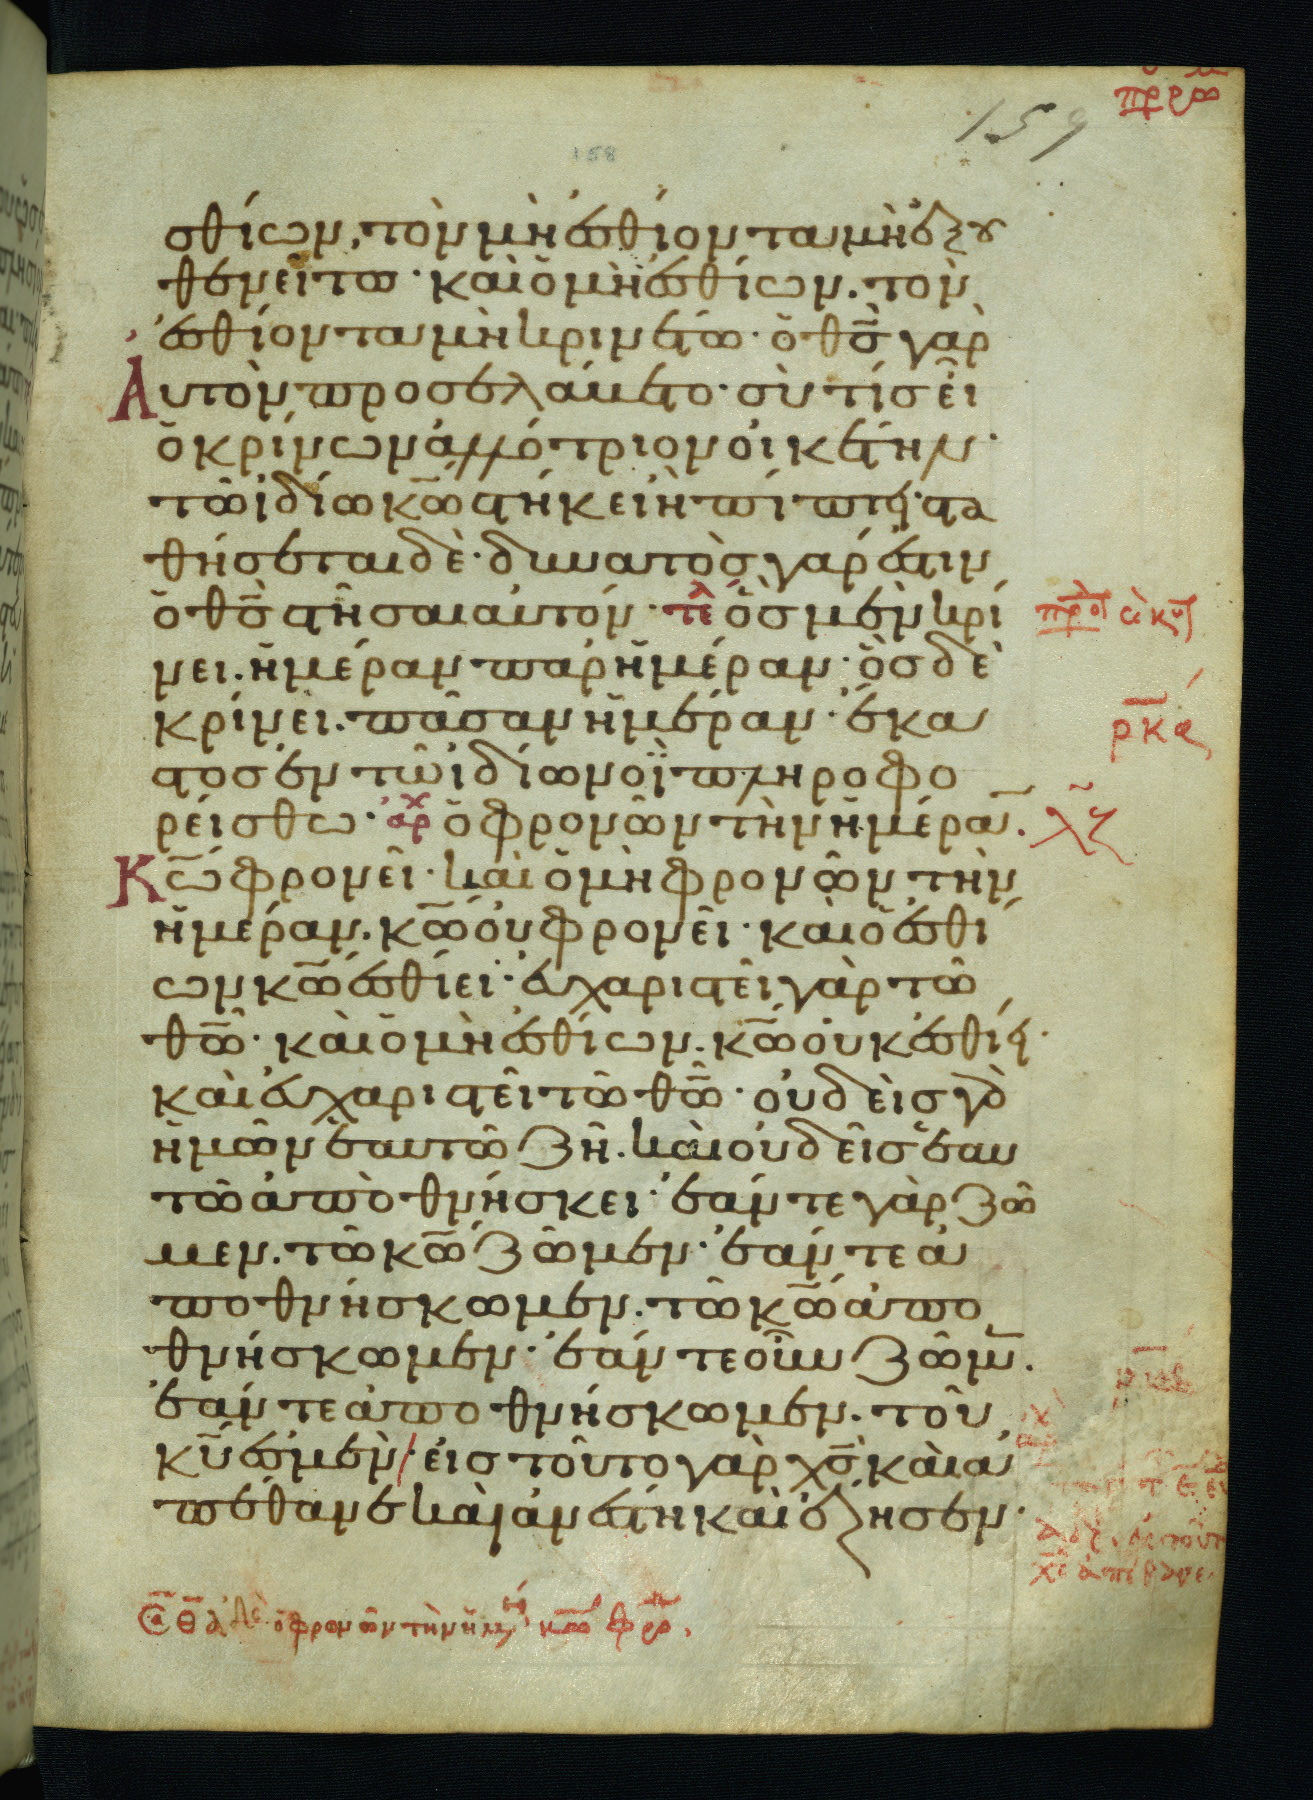 πρ ρω
159
158
σθίων, τὸν μὴ ἐσθίοντα μὴ ἐξου
θενείτω· καὶ ὁ μὴ ἐσθίων. τὸν
ἐσθίοντα μὴ κρινέτω· ὁ θ̅ς̅ γὰρ
Αὐτὸν προσελάβετο· σὺ τίς εἶ
ὁ κρίνων ἀλλότριον οἰκέτην·
τῶ ἰδίω κ̅ω̅ στήκει ἢ πίπτει· στα
θήσεται δὲ· δυνατὸς γάρ ἐστιν
ὁ θ̅ς̅ στῆσαι αὐτόν· τε̅λ ὃς μὲν κρί
νει. ἡμέραν παρ ἡμέραν· ὃς δὲ
κρίνει. πᾶσαν ἡμέραν· ἕκα
στος ἐν τῶ ἰδίω νοῒ πληροφο
ρείσθω· ἀρχ ὁ φρονῶν τὴν ἡμέρα̅.
Κ̅ω̅ φρονεῖ· καὶ ὁ μὴ φρονῶν τὴν
ἡμέραν. κ̅ω̅ οὐ φρονεῖ· καὶ ὁ ἐσθί
ων κ̅ω̅ ἐσθίει· εὐχαριστεῖ γὰρ τῶ
θ̅ω̅· καὶ ὁ μὴ ἐσθίων. κ̅ω̅ οὐκ ἐσθίει·
καὶ εὐχαριστεῖ τῶ θ̅ω̅· οὐδεὶς γὰρ
ἡμῶν ἑαυτῶ ζῆ. καὶ οὐδεὶς ἑαυ
τῶ ἀποθνήσκει· ἐάν τε γὰρ ζῶ
μεν. τῶ κ̅ω̅ ζῶμεν· ἐάν τε ἀ
ποθνήσκωμεν. τῶ κ̅ω̅ ἀπο
θνήσκωμεν· ἐάν τε οὖν ζῶμ̅.
ἐάν τε ἀποθνήσκωμεν. τοῦ
κ̅υ̅ ἐσμὲν· εἰς τοῦτο γὰρ χ̅ς̅ καὶ ἀ
πέθανε καὶ ἀνέστη καὶ ἔζησεν·
ρ̅κ̅α
λζ
ὁ φρονῶν τὴν ἡμ κ̅ω̅ φρο